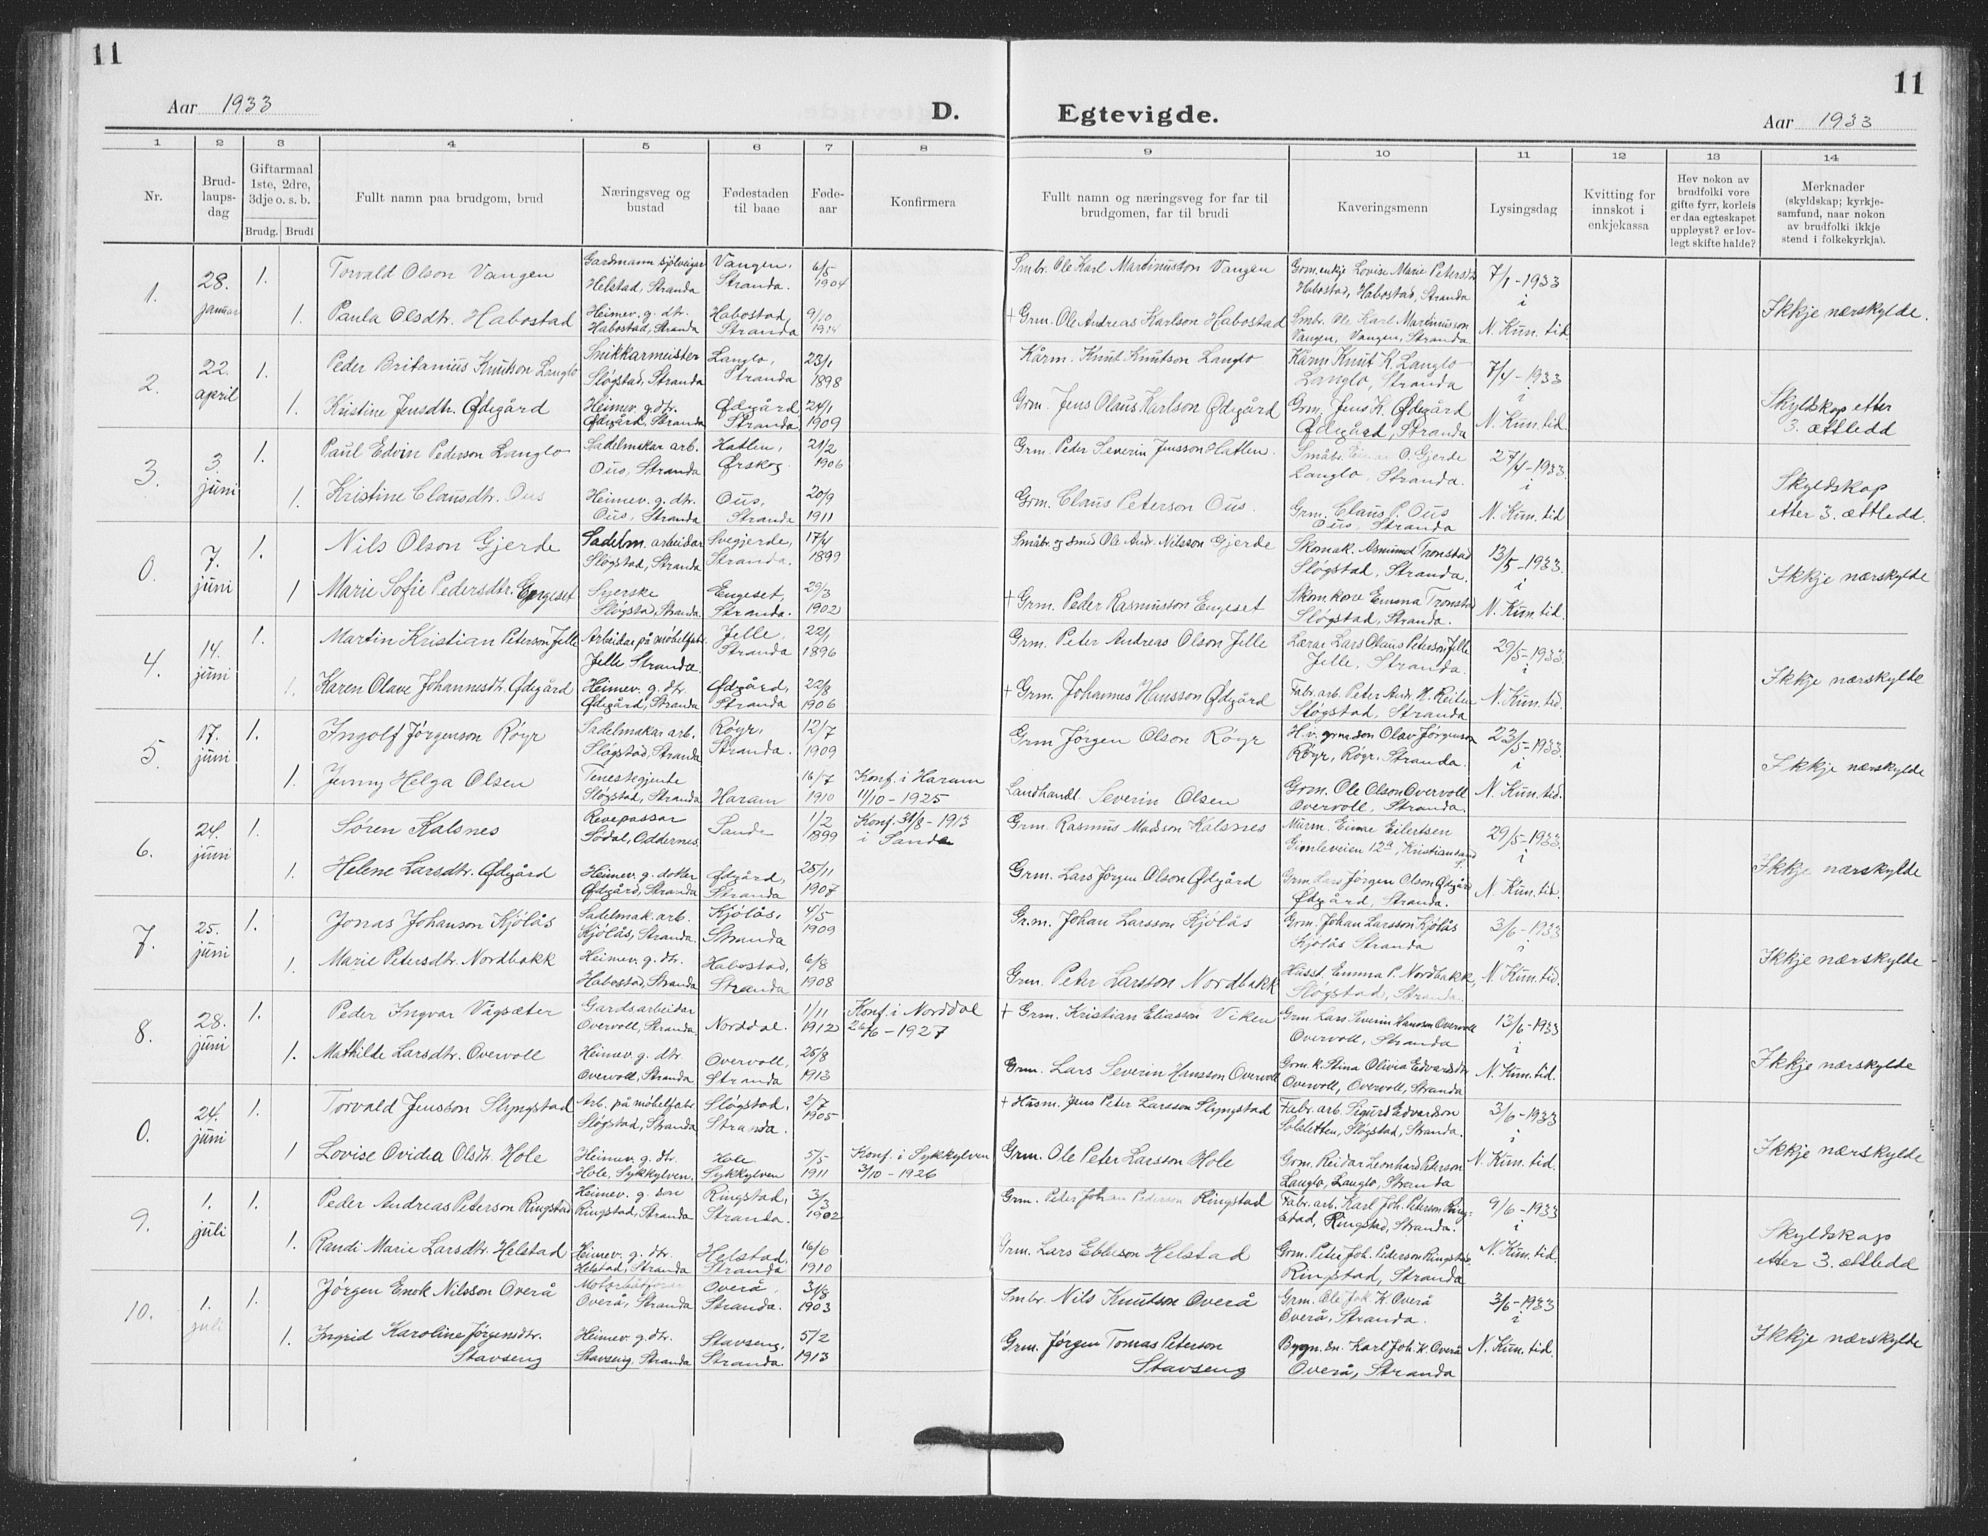 11
11
Aar 1933
D.
Egtevigde.
Aar 1933
1 2 3 4 5 6 7 8 9 10 11 12 13 14
Nr.
Brud-
laups-
dag
Giftarmaal
1ste, 2dre,
3dje o. s. b.
Brudg. Brudi
Fullt namn paa brudgom, brud
Næringsveg og
bustad
Fødestaden
til baae
Føde-
aar
Konfirmera
Fullt namn og næringsveg for far til
brudgomen, far til brudi
Kaveringsmenn
Lysingsdag
Kvitting for
innskot i
enkjekassa
Hev nokon av
brudfolki vore
gifte fyrr, korleis
er daa egteskapet
uppløyst? er lov-
legt skifte halde?
Merknader
(skyldskap; kyrkje-
samfund, naar nokon
av brudfolki ikkje
stend i folkekyrkja).
1. 28. januar
1. Torvald Olson Vangen
Gardmann sjølveigar
Helstad, Stranda
Vangen,
Stranda.
6/5
1904
Smbr. Ole Karl Martinusson Vangen
Grm.enkje Lovise Marie Petersdtr
Habostad, Habostad, Stranda
7/1-1933
i
1. Paula Olsdtr. Habostad
Heimev. g. dtr.
Habostad, Stranda
Habostad,
Stranda
9/10
† Grm. Ole Andreas Karlson Habostad
Smbr. Ole Karl Martinusson
Vangen, Vangen, Stranda
N. Kun. tid
Ikkje nærskylde.
2. 22. april
1. Peder Britanius Knutson Langlo
Snikkarmeister
Sløgstad, Stranda
Langlo,
Stranda
23/1
1898
Kårm. Knut Knutson Langlo
Kårm Knut K. Langlo
Langlo, Stranda
7/4-1933
i
1. Kristine Jensdtr. Ødegård
Heimev. g. dtr.
Ødegård, Stranda
Ødegård,
Stranda
24/1
1909
Grm. Jens Olaus Karlson Ødegård
Grm. Jens K. Ødegård
Ødegård, Stranda
N. Kun. tid.
Skyldskap etter
3. ættledd
3. 3. juni
1. Paul Edvin Pederson Langlo
Sadelmakar arb.
Ous, Stranda
Hatlen,
Ørskog
21/2
1906
Grm. Peder Severin Jensson Hatlen.
Småbr. Einar O. Gjerde
Langlo, Stranda.
27/4-1933.
i
1. Kristine Clausdtr. Ous
Heimev. g. dtr.
Ous, Stranda
Ous,
Stranda
20/9
1911
Grm. Claus Peterson Ous.
Grm. Claus P. Ous
Ous, Stranda
N. Kun. tid
Skyldskap
etter 3. ættledd.
0. 7. juni
1. Nils Olson Gjerde
Sadelm. arbeidar
Sløgstad, Stranda
Svegjerde,
Stranda.
17/4
1899
Småbr. og smed Ole And. Nilsson Gjerde
Skomak. Asmund Tronstad
Sløgstad, Stranda.
13/5-1933.
i
1 Marie Sofie Pedersdtr. Engeset
Syerske
Sløgstad, Stranda.
Engeset,
Stranda.
29/3
1902
† Grm. Peder Rasmusson Engeset
Skom.kone Emma Tronstad
Sløgstad, Stranda.
N. Kun. tid.
Ikkje nærskylde
4. 14. juni
1. Martin Kristian Peterson Jelle
Arbeidar på møbelfabr.
Jelle, Stranda
Jelle,
Stranda
22/1
1896
Grm. Peter Andreas Olson Jelle
Lærar Lars Olaus Peterson Jelle
Jelle, Stranda.
29/5-1933.
i
1. Karen Olave Johannesdtr. Ødegård
Heimev. g. dtr.
Ødegård, Stranda
Ødegård,
Stranda
22/8
1906
† Grm. Johannes Hansson Ødegård
Fabr. arb. Peter Andr. H. Reiten
Sløgstad, Stranda.
N. Kun. tid.
Ikkje nærskylde
5. 17. juni
1. Ingolf Jørgenson Røyr
Sadelmakar arb.
Sløgstad, Stranda
Røyr,
Stranda.
12/7
1909
Grm Jørgen Olson Røyr
H.v. grm.son Olav Jørgenson
Røyr, Røyr, Stranda.
23/5-1933.
i
1. Jenny Helga Olsen
Tenestegjente
Sløgstad, Stranda
Haram
16/7
1910
Konf. i Haram
11/10-1925
Landhandl. Severin Olsen
Grm. Ole Olson Overvoll
Overvoll, Stranda.
N. Kun. tid.
Ikkje nærskylde
6. 24. juni
1. Søren Kalsnes
Revepassar
Sødal, Oddernes
Sande
1/2
1899
Konf. 31/8-1913
i Sande
Grm. Rasmus Madsson Kalsnes
Murm. Einar Eilertsen
Gimleveien 12a, Kristiansand
29/5-1933.
i
1. Helene Larsdtr. Ødegård
Heimev. g. dotter
Ødegård, Stranda
Ødegård,
Stranda
25/11
1907
Grm. Lars Jørgen Olson Ødegård
Grm. Lars Jørgen Olson Ødegård
Ødegård, Stranda.
N. Kun. tid.
Ikkje nærskylde
7. 25. juni
1. Jonas Johanson Kjølås
Sadelmak. arb.
Kjølås, Stranda.
Kjølås,
Stranda
4/5
1909
Gr.m. Johan Larsson Kjølås
Grm. Johan Larsson Kjølås
Kjølås Stranda
3/6-1933
i
1. Marie Petersdtr. Nordbakk
Heimev. g. dtr.
Habostad, Stranda
Habostad,
Stranda
6/8
1908
Grm. Peter Larsson Nordbakk
Husst. Emma P. Nordbakk,
Sløgstad, Stranda.
N. Kun. tid.
Ikkje nærskylde
8. 28. juni
1. Peder Ingvar Vågsæter
Gardsarbeidar
Overvoll, Stranda
Norddal.
1/11
1912
Konf. i Norddal
26/6-1927
† Grm. Kristian Eliasson Viken
Grm. Lars Severin Hansson Overvoll
Overvoll, Stranda
13/6-1933
i
1. Mathilde Larsdtr. Overvoll
Heimev. g. dtr.
Overvoll, Stranda
Overvoll,
Stranda
25/8
1913
Grm. Lars Severin Hansson Overvoll
Grm. k. Stina Olivia Edvardsdtr
Overvoll, Overvoll, Stranda
N. Kun. tid.
Ikkje nærskylde
0. 24. juni
1. Torvald Jensson Slyngstad
Arb. på møbelfabr.
Sløgstad, Stranda
Sløgstad,
Stranda.
2/7
1905
† Husm. Jens Peter Larsson Slyngstad
Fabr. arb. Sigurd Edvardson
Solsletten, Sløgstad, Stranda.
3/6-1933
i
1 Lovise Ovidea Olsdtr. Hole
Heimev. g. dtr.
Hole, Sykkylven
Hole
Sykkylven
5/5
1911
Konf. i Sykkylven
3/10-1926
Grm. Ole Peter Larsson Hole
Grm. Reidar Leonhard Peterson
Langlo, Langlo, Stranda
N. Kun. tid.
Ikkje nærskylde
9. 1. juli
1. Peder Andreas Peterson Ringstad
Heimev. g. son
Ringstad, Stranda
Ringstad,
Stranda.
1902
Grm. Peter Johan Pederson Ringstad
Fabr. arb. Karl Joh. Peterson Ring-
stad, Ringstad, Stranda.
9/6-1933
i
1. Randi Marie Larsdtr. Helstad
Heimev. g. dtr.
Helstad, Stranda
Helstad,
Stranda
16/6
1910
Grm. Lars Ebbeson Helstad
Grm. Peter Joh. Pederson Ringstad
Ringstad, Stranda
N. Kun. tid.
Skyldskap
etter 3. ættledd
10. 1. juli
1. Jørgen Enok Nilsson Overå
Overå, Stranda
Overå,
Stranda.
31/8
1903
Smbr. Nils Knutson Overå
Grm. Ole Joh. K. Overå
Overå, Stranda.
3/6-1933
i
1. Ingrid Karoline Jørgensdtr.
Stavseng
Heimev. g. dtr.
Stavseng, Stranda
Stavseng,
Stranda
5/2
1913
Grm. Jørgen Tomas Peterson
Stavseng
Bygn. sn. Karl Joh. K. Overå
Overå, Stranda
N. Kun. tid.
Ikkje nærskylde